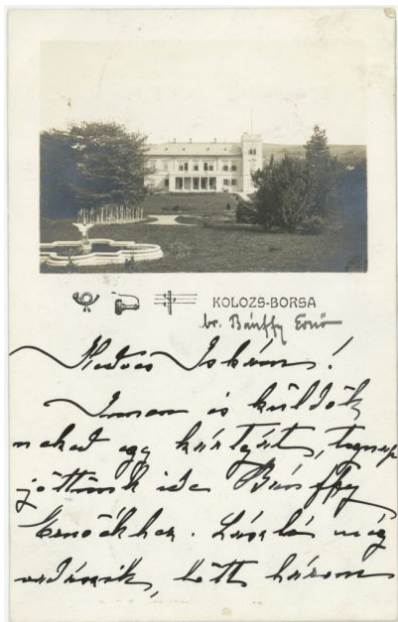 KOLOZS-BORSA
br. Bánffy Ernő
Kedves Istvánom!
Innen is küldök
neked egy kártyát, tegnap
jöttünk ide Bánffy
Ernőékhez. László még
vadászik, lőtt három